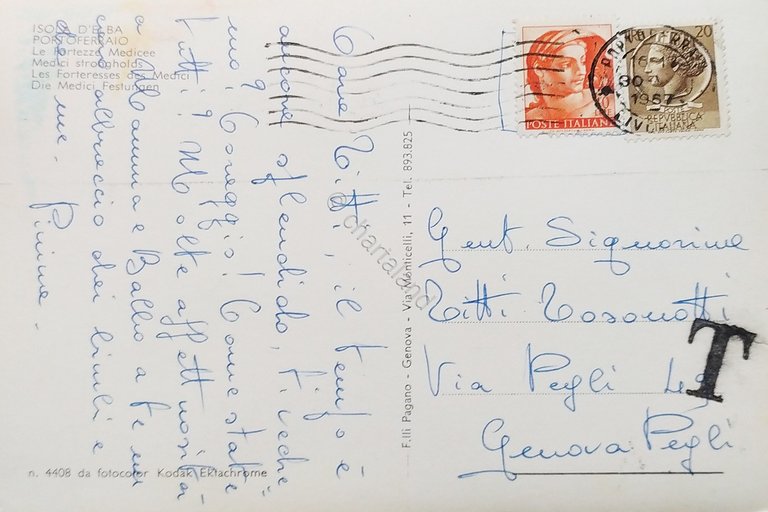 ISOLA D'ELBA
PORTOFERRAIO
Le Fortezze Medicee
Medici strongholds
Les Forteresses des Medici
Die Medici Festungen
Cara Titti, il tempo è
ancora splendido, ti vedre
mo? Coraggio! Come state
tutti? Molte affettuosità
a Mamma e Babbo a te un
caro abbraccio dai bimbi e
da me. Pinina.
n. 4408 da fotocolor Kodak Ektachrome
F.lli Pagano - Genova - Via Monticelli, 11 - Tel. 893.825
chartaland
POSTE ITALIANE
20
REPUBBLICA
ITALIANA
PORTOFERRAIO
30
1967
T
Gent. Signorina
Titti
Via Pegli
Genova Pegli